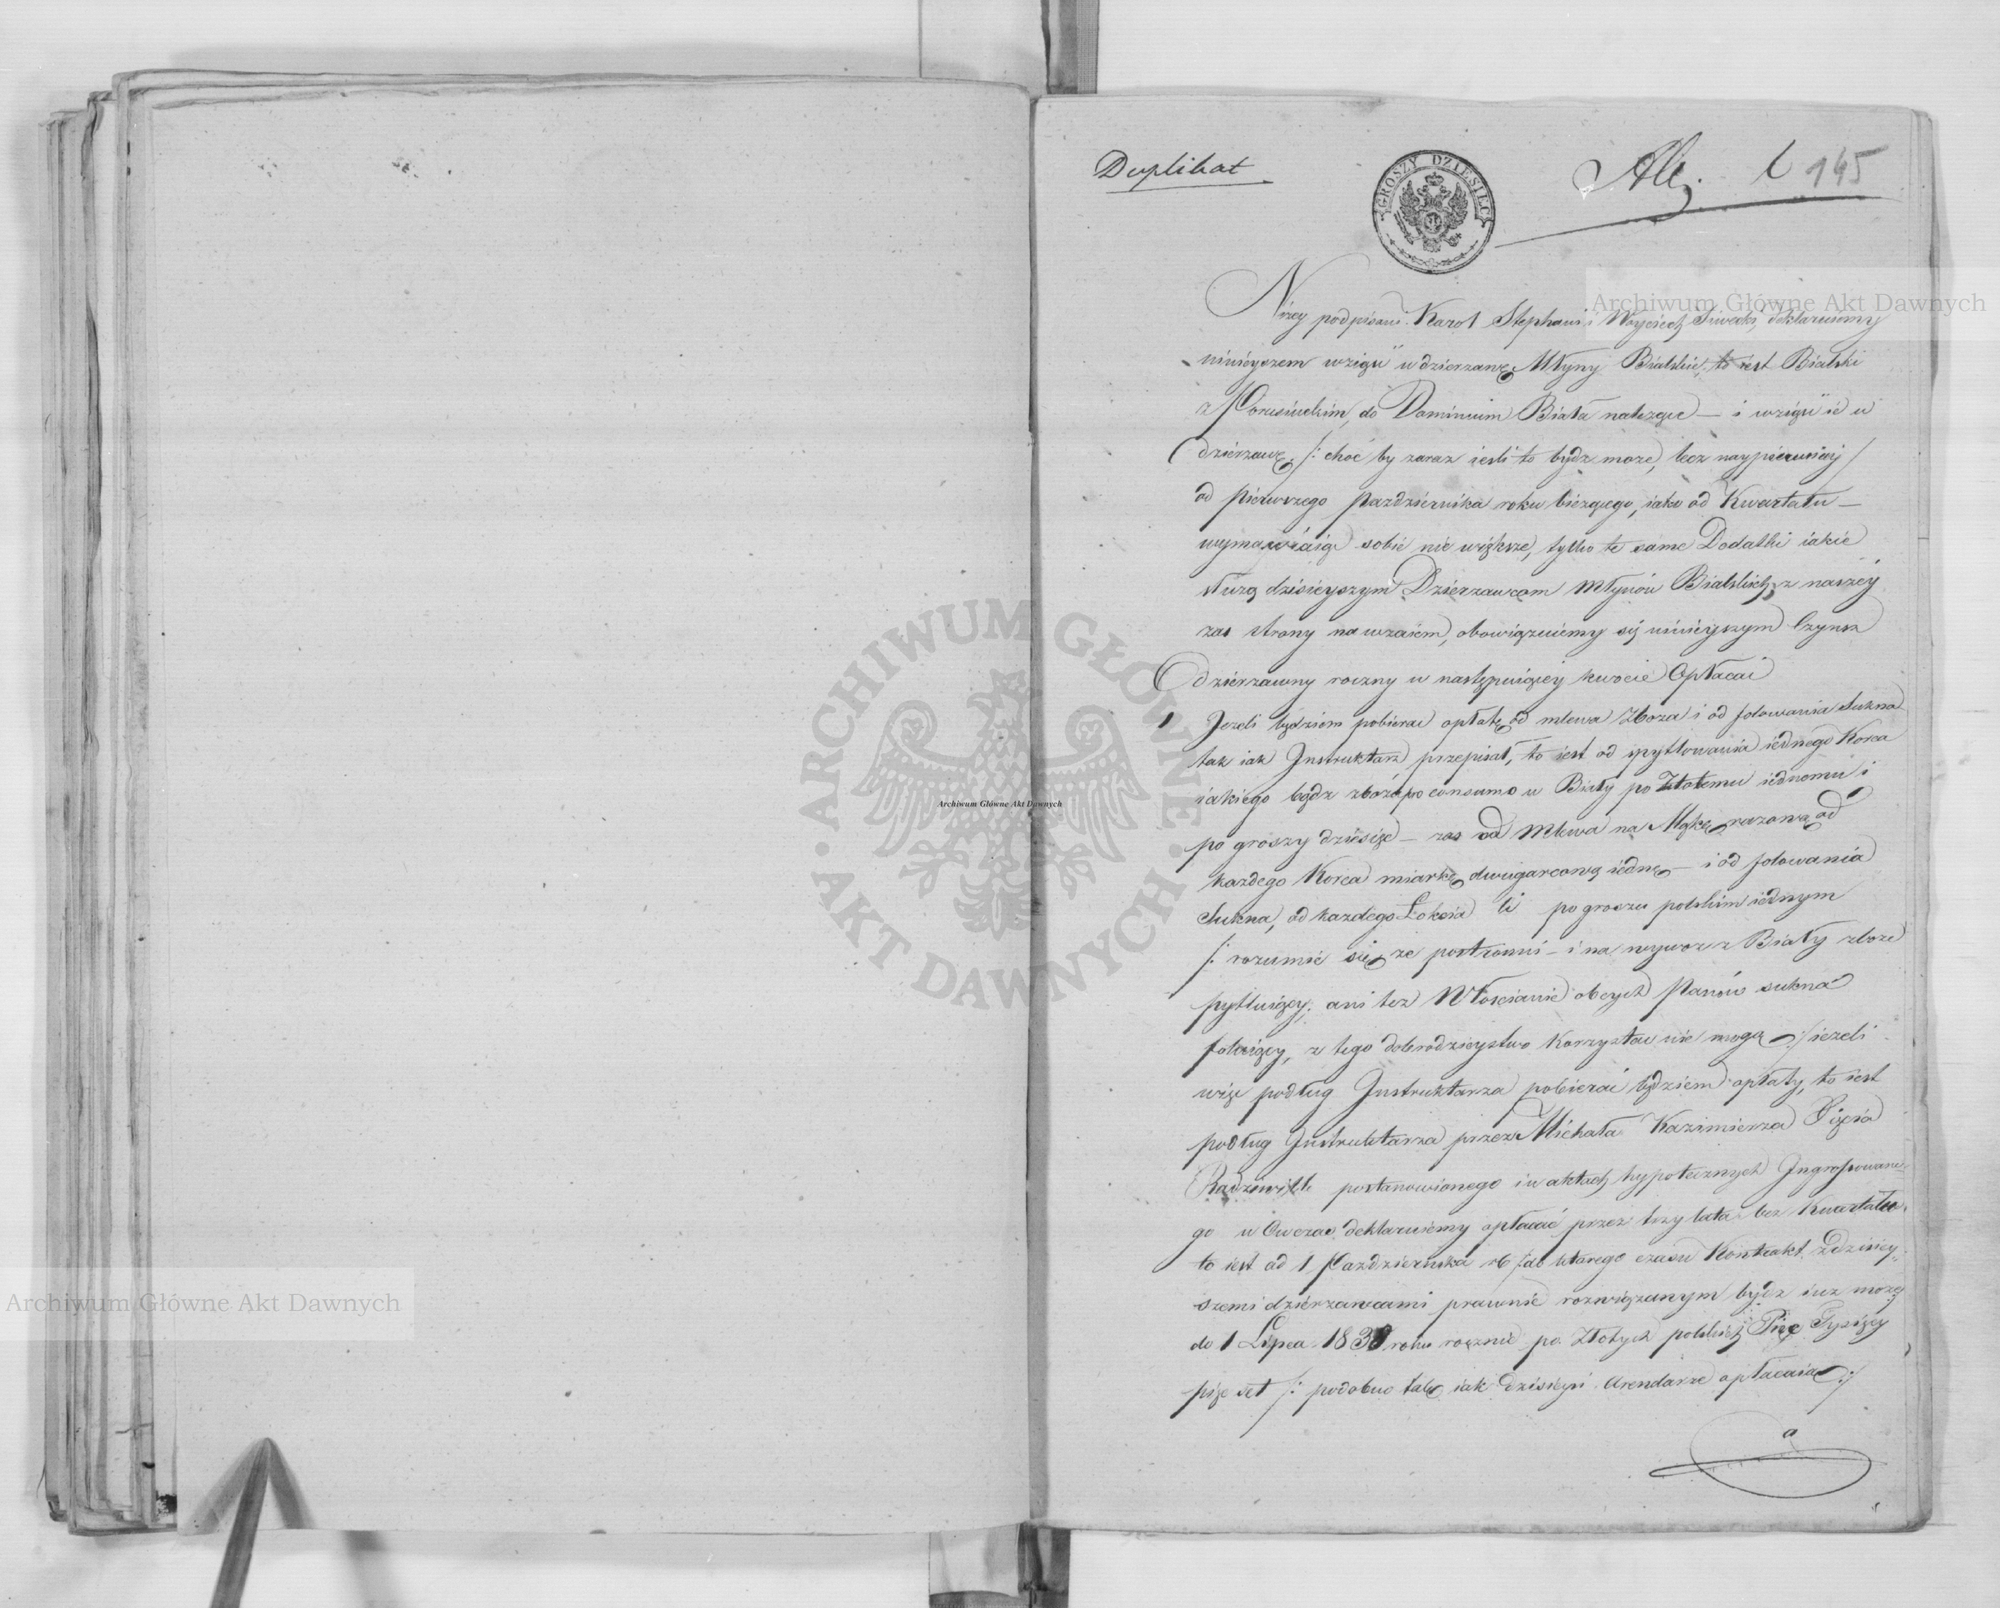 Duplikat
GROSZY DZIESIĘĆ
145
Niżey podpisani Karol Stephani i Woyciech deklaruiemy
ninieyszem wziąść w dzierzawę Młyny Bialskie, to iest Bialski
z Porosiuckim, do Dominium Biała należące — i wziąść ie w
dzierzawę /: choć by zaraz iesli to bydz moze, lecz naypierwiey/
od pierwszego Pazdziernika roku bieżącego, iako od Kwartału —
wymawiaiąc sobie nie większe, tylko te same Dodatki iakie
służą dzisieyszym Dzierzawcom Młynów Bialskich, z naszéy
zas strony nawzaiem, obowiązuiemy się ninieyszym Czynsz
dzierzawny roczny w następuiącey kwocie Opłacać
1 Jezeli będziem pobierać opłatę od mlewa Zboza i od folowania Sukna
tak iak Instruktarz przepisał, to iest od pytlowania iednego Korca
iakiego bądz zboża pro consumo w Biały po Złotemu iednemu i
po groszy dziesięć — zas od Mlewa na Mąkę razową od
kazdego Korca miarkę dwugarcową iednę — i od folowania
Sukna, od kazdego Łokcia po groszu polskim iednym
/: rozumie się ze postronni — i na wywoz z Biały zboze
pytluiący, ani tez Włoscianie obcych Panów sukna
foluiący, z tego dobrodzieystwa Korzystać nie mogą :/ iezeli
więc podług Instruktarza pobierać będziem opłaty, to iest
podług Instruktarza przez Michała Kazimierza Xięcia
Radziwiłła postanowionego i w aktach hypotecznych Ingrossowane-
go w Owczas deklaruiemy opłacać przez trzy lata bez Kwartału
to iest od 1 Pazdziernika rb /: do ktorego czasu Kontrakt z dzisiey-
szemi dzierzawcami prawnie rozwiązanym bydz iuz moze/
do 1 Lipca 183 roku rocznie po Złotych polskich Pięć Tysięcy
pięć set /: podobno tale iak dzisieysi Arendarze opłacaią :/